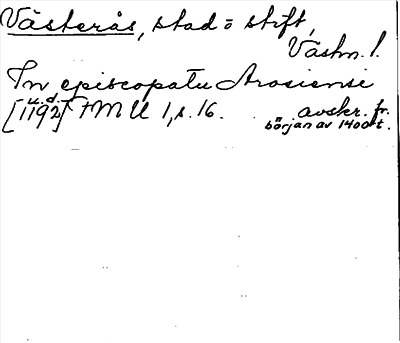 Västerås, stad o stift,
Västm. l.
In episcopatu Arosiensi
[1192] u.d. FMU 1, s. 16. avskr. fr.
början av 1400-t.